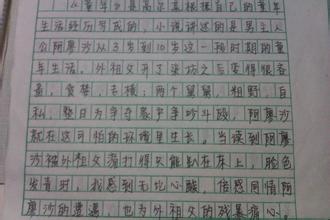 《童年》是高尔基根据自己的童年
生活经历写成的，小说讲述的是男主人
公阿廖沙从3岁到10岁这一段时期的童
年生活。外祖父开了染坊之后变得很吝
啬，贪婪，专横；两个舅舅，粗野，自
私，整日为争夺家产争吵斗殴，阿廖沙
就在这可怕的环境里生长。当读到阿廖
沙被外祖父毒打得只能趴在床上，脸色
发青时，我感到无比心酸，倍感同情阿
廖沙的遭遇，也为外祖父的残暴痛心